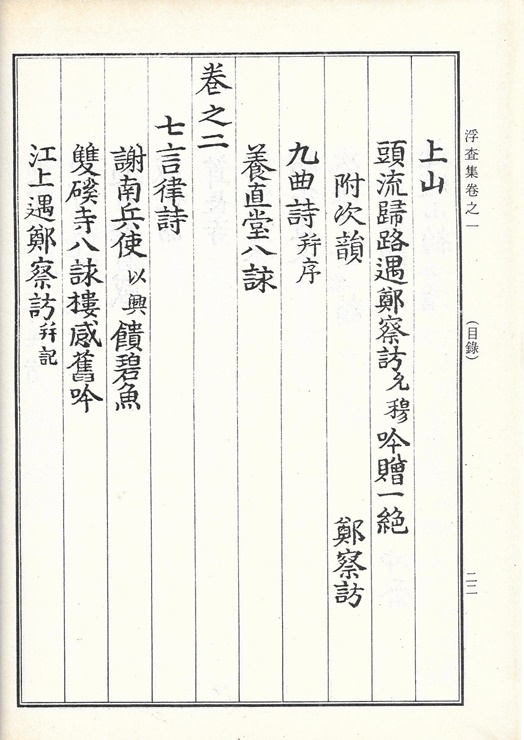 浮查集卷之一
（目錄）
二二
上山
頭流歸路遇鄭察訪允穆吟贈一絶
附次韻 鄭察訪
九曲詩幷序
養直堂八詠
卷之二
七言律詩
謝南兵使以興饋碧魚
雙磎寺八詠樓感舊吟
江上遇鄭察訪幷記